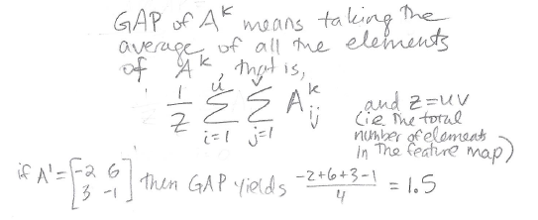 GAP of A^k means taking the
average of all the elements
of A^k, that is,
1/Z Σ_{i=1}^{u} Σ_{j=1}^{v} A_{ij}^k
and Z=uv
(ie. the total
number of elements
in the feature map)
if A' = [-2 6; 3 -1] then GAP yields (-2+6+3-1)/4 = 1.5